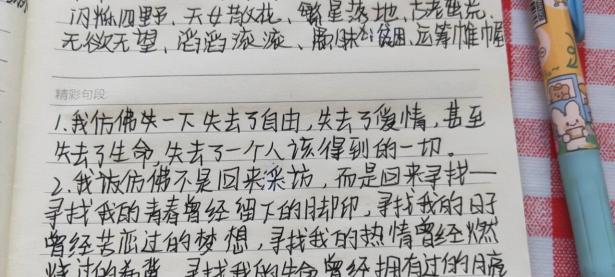 闪烁四野、天女散花、繁星落地、古老蛮荒、
无欲无望、滔滔流液、愚昧、运筹帷幄
精彩句段
1.我仿佛失一下失去了自由,失去了爱情,甚至
失去了生命,失去了一个人该得到的一切。
2.我该仿佛不是回来采访,而是回来寻找一
寻找我的青春曾经留下的脚印,寻找我的日子
曾经苦恋过的梦想,寻找我的热情曾经燃
烧过的希冀,寻找我的生命曾经拥有过的月亮